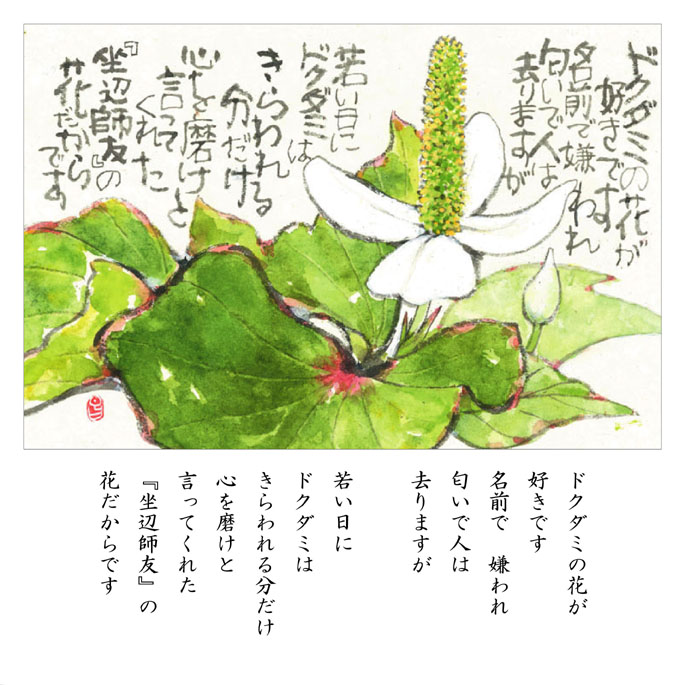 ドクダミの花が
好きです
名前で嫌われ
匂いで人は
去りますが
若い日に
ドクダミは
きらわれる
分だけ
心を磨けと
言って
くれた
『坐辺師友』の
花だから
です
ドクダミの花が
好きです
名前で　嫌われ
匂いで人は
去りますが
若い日に
ドクダミは
きらわれる分だけ
心を磨けと
言ってくれた
『坐辺師友』の
花だからです